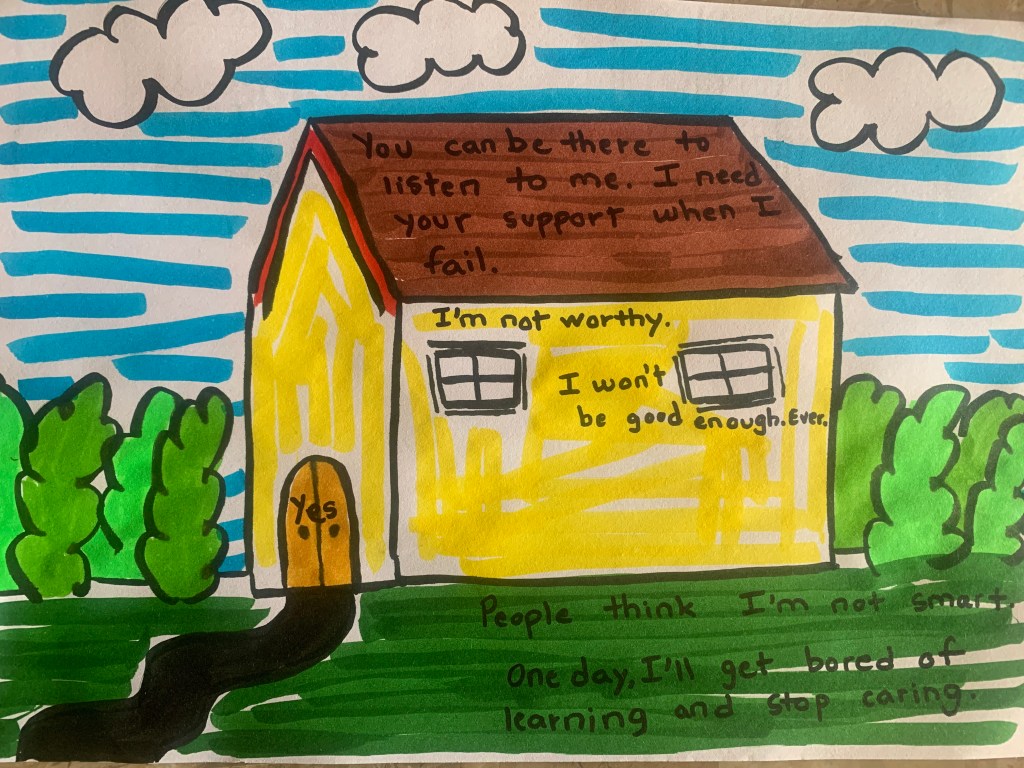 You can be there to
listen to me. I need
your support when I
fail.
I'm not worthy.
I won't
be good enough. Ever.
Yes
People think I'm not smart.
One day, I'll get bored of
learning and stop caring.